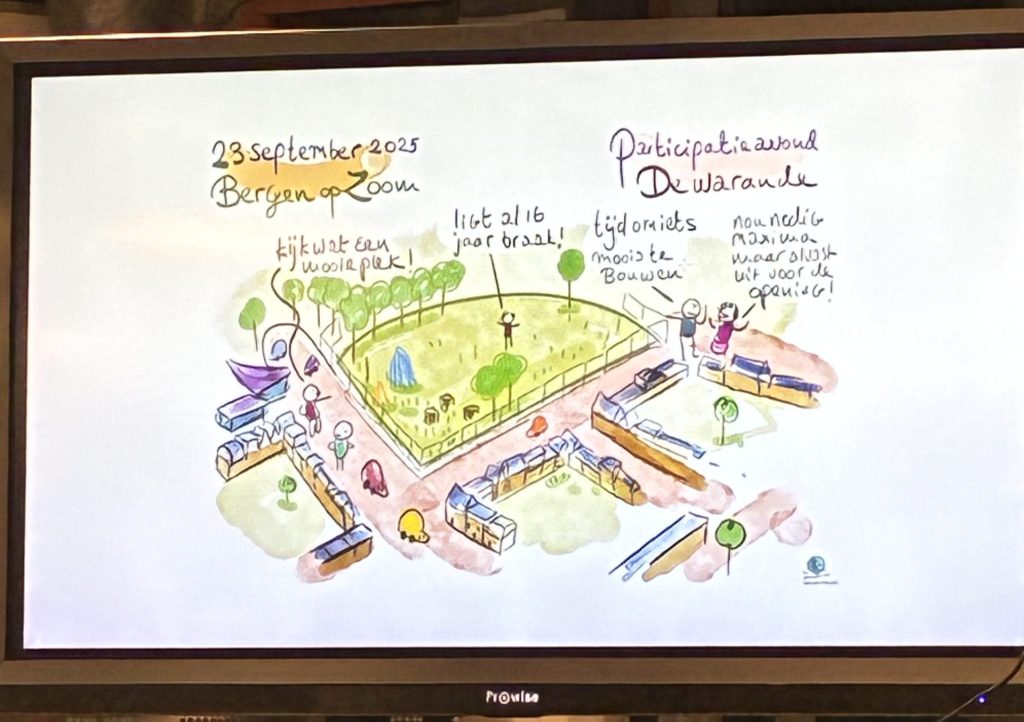 23 september 2025
Bergen op Zoom
Participatieavond
De Warande
kijk wat een
mooie plek!
ligt al 16
jaar braak!
tijd om iets
moois te
Bouwen
nou nodig
maxima
maar alvast
uit voor de
opening!
Prowise